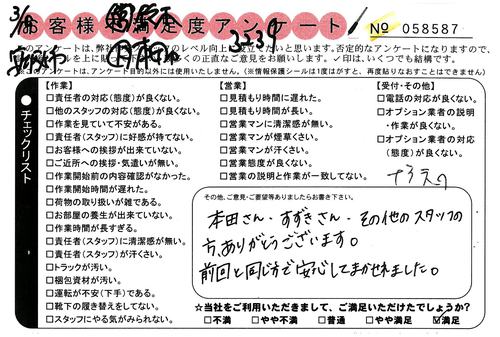 3/18
お客様満足度アンケート
3339
No 058587
※このアンケートは、アンケート目的以外には使用いたしません。(情報保護シールは1度がすと、再度貼りなおすことはできません)
チェックリスト
【作業】
□責任者の対応(態度)が良くない。
□他のスタッフの対応(態度)が良くない。
□作業を見ていて不安がある。
□責任者(スタッフ)に好感が持てない。
□お客様への挨拶が出来ていない。
□ご近所への挨拶・気遣いが無い。
□作業開始前の内容確認がなかった。
□作業開始時間が遅れた。
□荷物の取り扱いが雑である。
□お部屋の養生が出来ていない。
□作業時間が長すぎる。
□責任者(スタッフ)に清潔感が無い。
□責任者(スタッフ)が汗くさい。
□トラックが汚い。
□梱包資材が汚い。
□運転が不安(下手)である。
□靴下の履き替えをしてない。
□スタッフにやる気がみられない。
【営業】
□見積もり時間に遅れた。
□見積もり時間が長い。
□営業マンに清潔感が無い。
□営業マンが煙草くさい。
□営業マンが汗くさい。
□営業態度が良くない。
□営業の説明と作業が一致してない。
【受付・その他】
□電話の対応が良くない。
□オプション業者の説明
・作業が良くない。
□オプション業者の対応
(態度)が良くない。
その他、ご意見・ご要望等ありましたらお書き下さい。
本田さん・すずきさん・その他のスタッフの
方、ありがとうございます。
前回と同じ方で安心してまかせれました。
☆当社をご利用いただきまして、ご満足いただけたでしょうか?
□不満 □やや不満 □普通 □やや満足 ☑満足